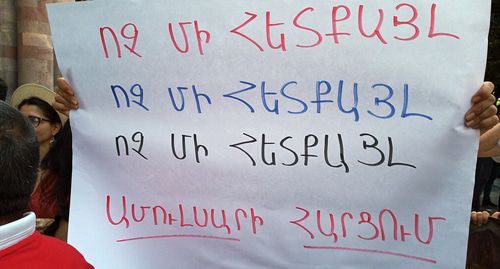 ՈՉ ՄԻ ՀԵՏՔԱՅԼ
ՈՉ ՄԻ ՀԵՏՔԱՅԼ
ՈՉ ՄԻ ՀԵՏՔԱՅԼ
ԱՄՈՒԼՍԱՐԻ ՀԱՐՑՈՒՄ